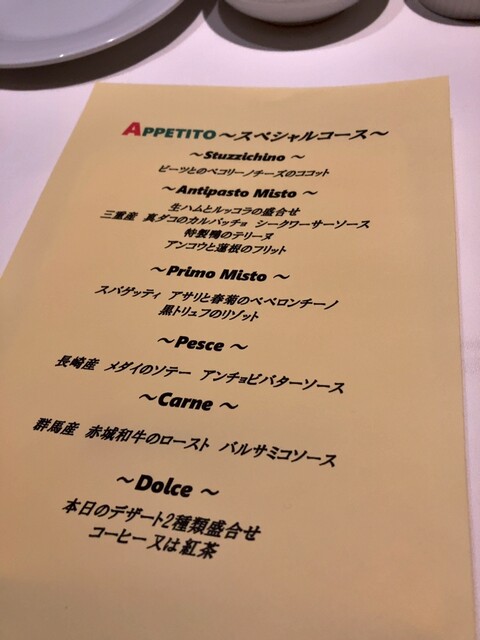 APPETITO～スペシャルコース～
～Stuzzichino ～
ビーツとのペコリーノチーズのココット
～Antipasto Misto ～
生ハムとルッコラの盛合せ
三重産 真ダコのカルパッチョ シークワーサーソース
特製鴨のテリーヌ
アンコウと蓮根のフリット
～Primo Misto ～
スパゲッティ アサリと春菊のペペロンチーノ
黒トリュフのリゾット
～Pesce ～
長崎産 メダイのソテー アンチョビバターソース
～Carne ～
群馬産 赤城和牛のロースト バルサミコソース
～Dolce ～
本日のデザート2種類盛合せ
コーヒー又は紅茶